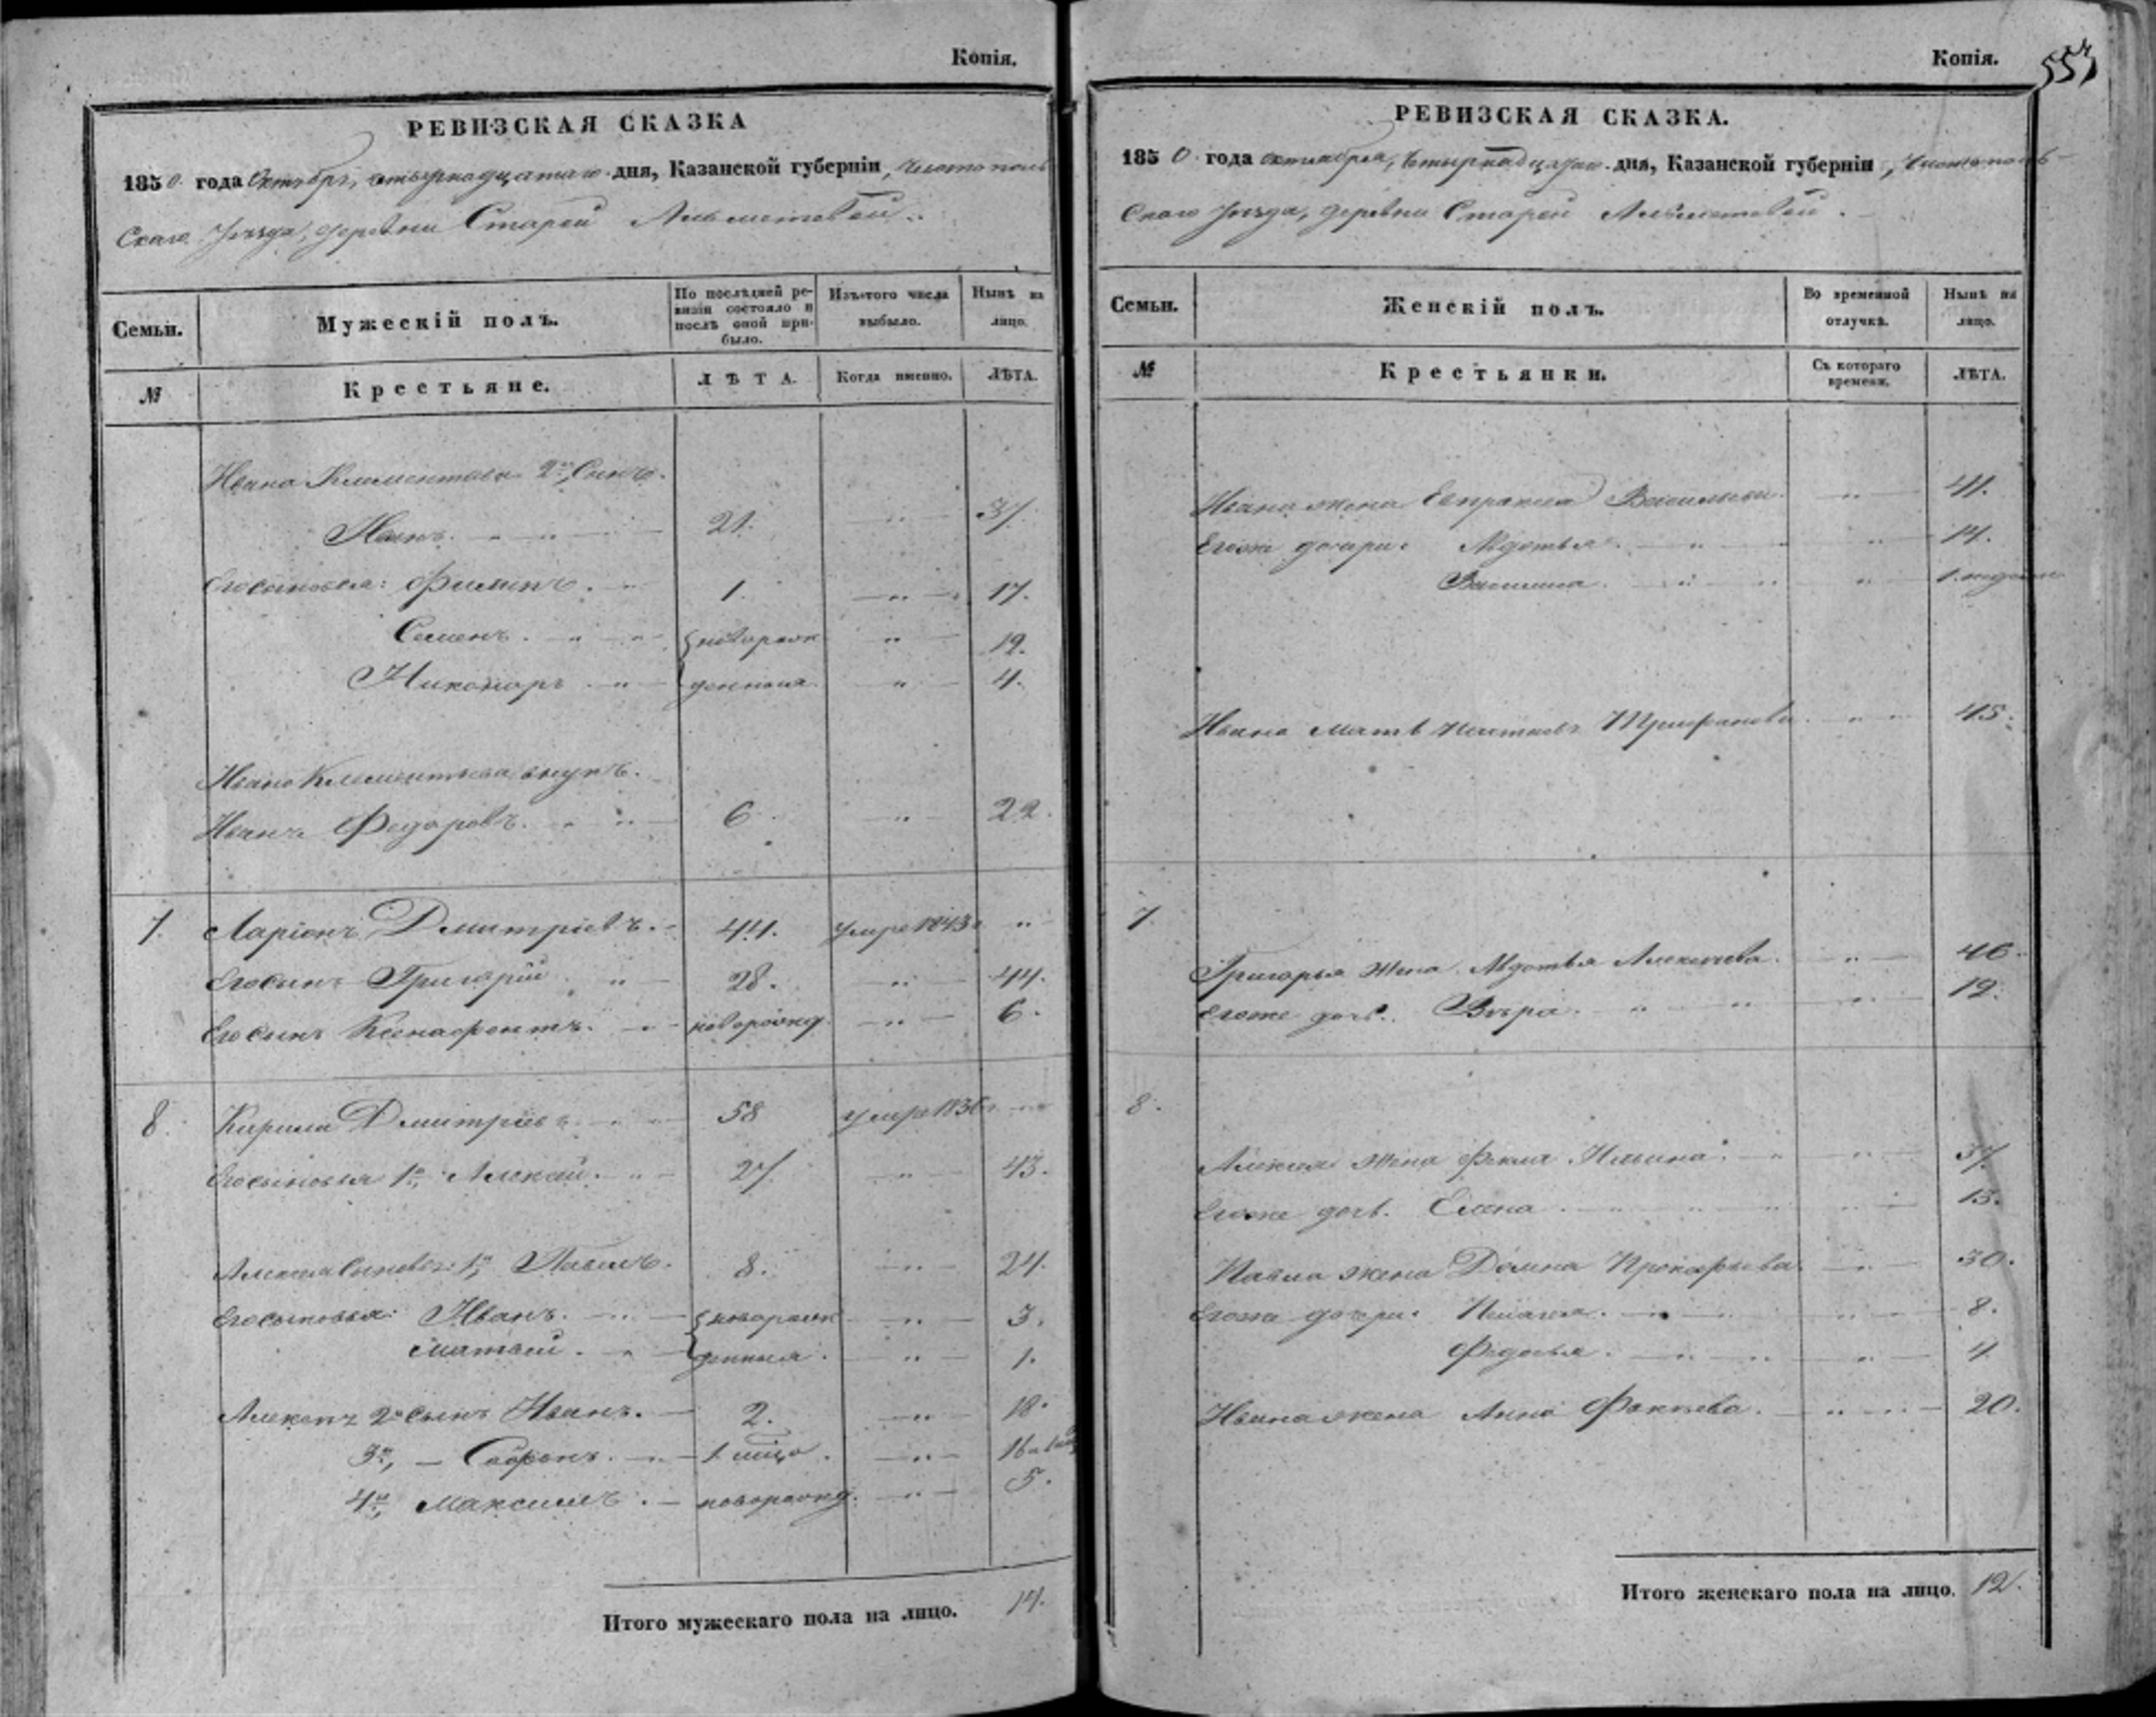 Копія.
РЕВИЗСКАЯ СКАЗКА
1850 года Октября, четырнадцатаго дня, Казанской губерніи, Чистополь
скаго Уѣзда, деревни Старой Альметевой.
Семьи.
Мужескій полъ.
По послѣдней ре-
визіи состояло и
послѣ оной при-
было.
Изъ того числа
выбыло.
Нынѣ на
лицо.
№
Крестьяне.
ЛѢТА.
Когда именно.
ЛѢТА.
Ивана Клементьева 2й, Сынъ.
21.
Его сыновья: Филипъ. 1. 17.
Семенъ. новорож 12.
Никаноръ денныя. 4.
Ивана Клементьева внукъ.
Иванъ Федоровъ. 6. 22.
7. Ларіонъ Дмитріевъ. 44. умре 1843
Его сынъ Григорій 28. 44.
Его сынъ Ксенафонтъ. новорожд. 6.
8. Кирила Дмитріевъ 58 умре 1836
Его сыновья 1й, Алексей. 27. 43.
Алексея Сыновья: 1й, Павелъ. 8. 24.
Его сыновья: Иванъ. новорож 3.
Матвей. денныя. 1.
2й сынъ Иванъ. 2. 18.
3й, Софронъ. 1.
4й, Максимъ. новорожд. 5.
Итого мужескаго пола на лицо. 14.
Копія.
557
РЕВИЗСКАЯ СКАЗКА.
1850 года октября, четырнадцатаго дня, Казанской губерніи, Чистополь-
скаго Уѣзда, деревни Старой Альметевой.
Семьи.
Женскій полъ.
Во временной
отлучкѣ.
Нынѣ на
лицо.
№
Крестьянки.
Съ котораго
времени.
ЛѢТА.
Ивана жена Евпраксия Васильева. 41.
Егоже дочери: Авдотья. 14.
1. недели
Ивана мать Трифанова 45.
7.
Григорья жена Авдотья Алексеева. 46.
Егоже дочь. Вѣра. 12.
8.
Алексея жена Фекла Ильина. 37.
Егоже дочь. Елена. 13.
Павла жена Домна Прокофьева. 30.
Егоже дочери: Пелагея. 8.
Федосья. 4.
Ивана жена Анна Фокеева. 20.
Итого женскаго пола на лицо. 12.